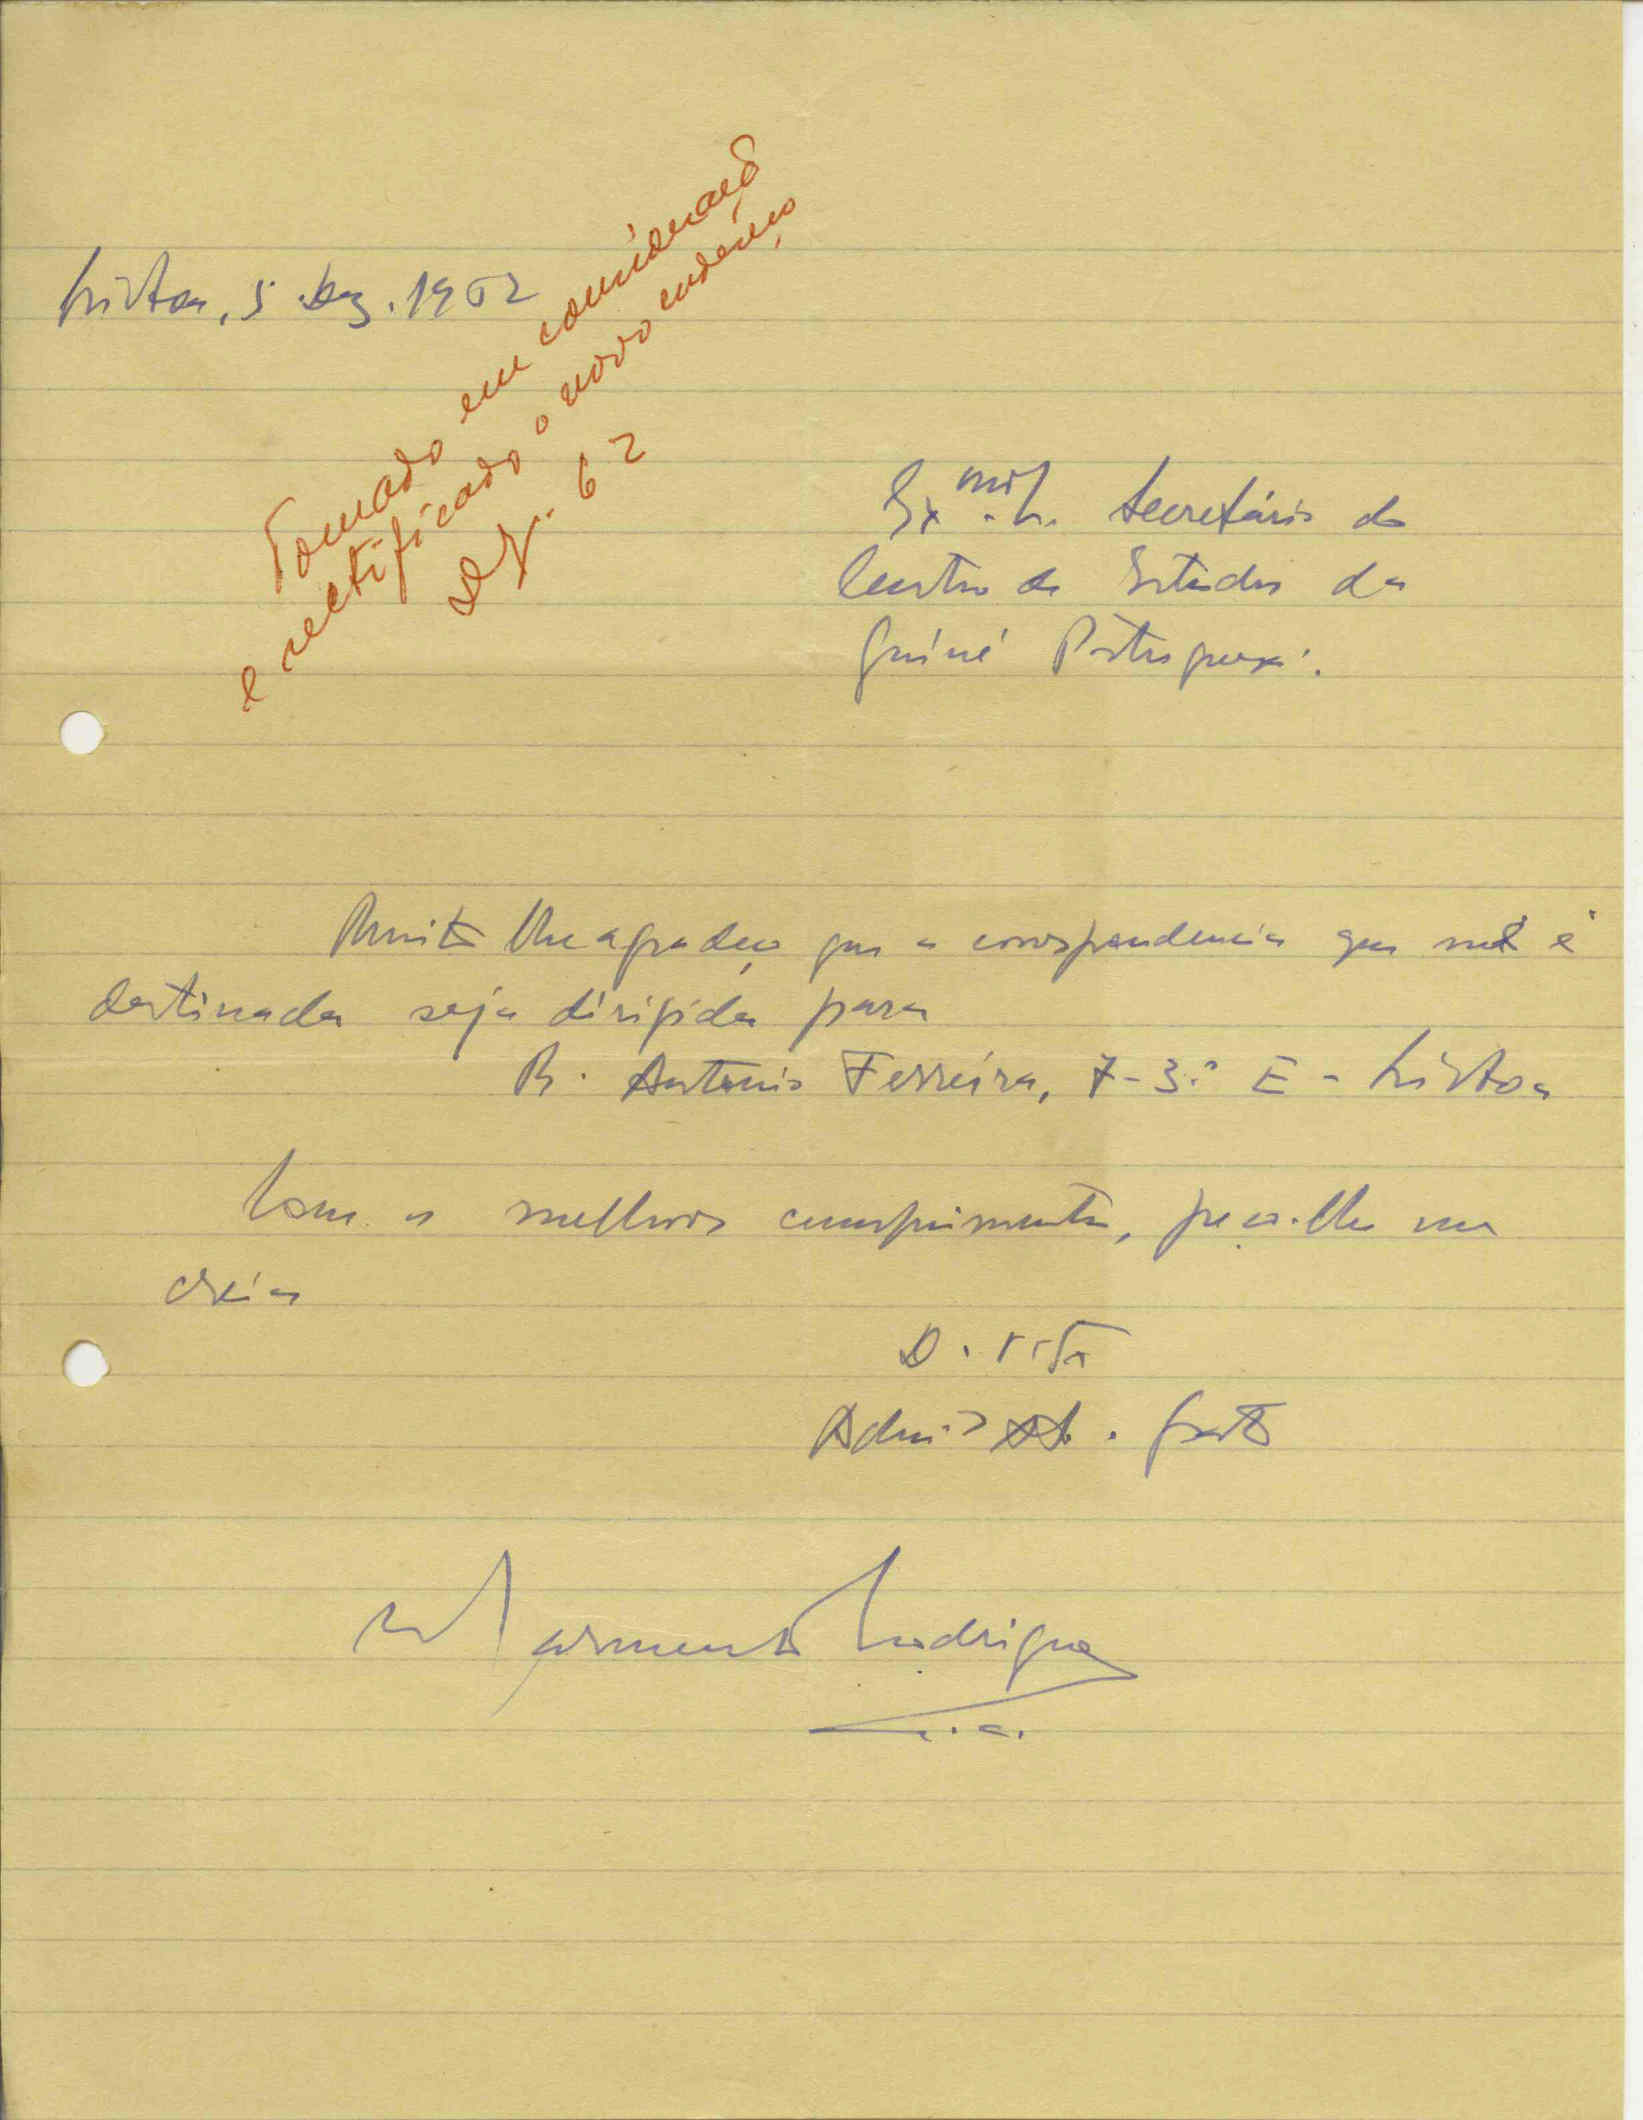 Lisboa, 5 Dez. 1962
Tomado em consideração
e rectificado o novo endereço
Dez. 62
Exmº. Sr. Secretário do
Centro de Estudos da
Guiné Portuguesa.
Muito lhe agradeço que a correspondencia que me é
destinada seja dirigida para
R. Antonio Ferreira, 7-3.º E - Lisboa
Com os melhores cumprimentos, peço-lhe me
creia
D. V. Exª
Admor At. Grato
Sarmento Rodrigues